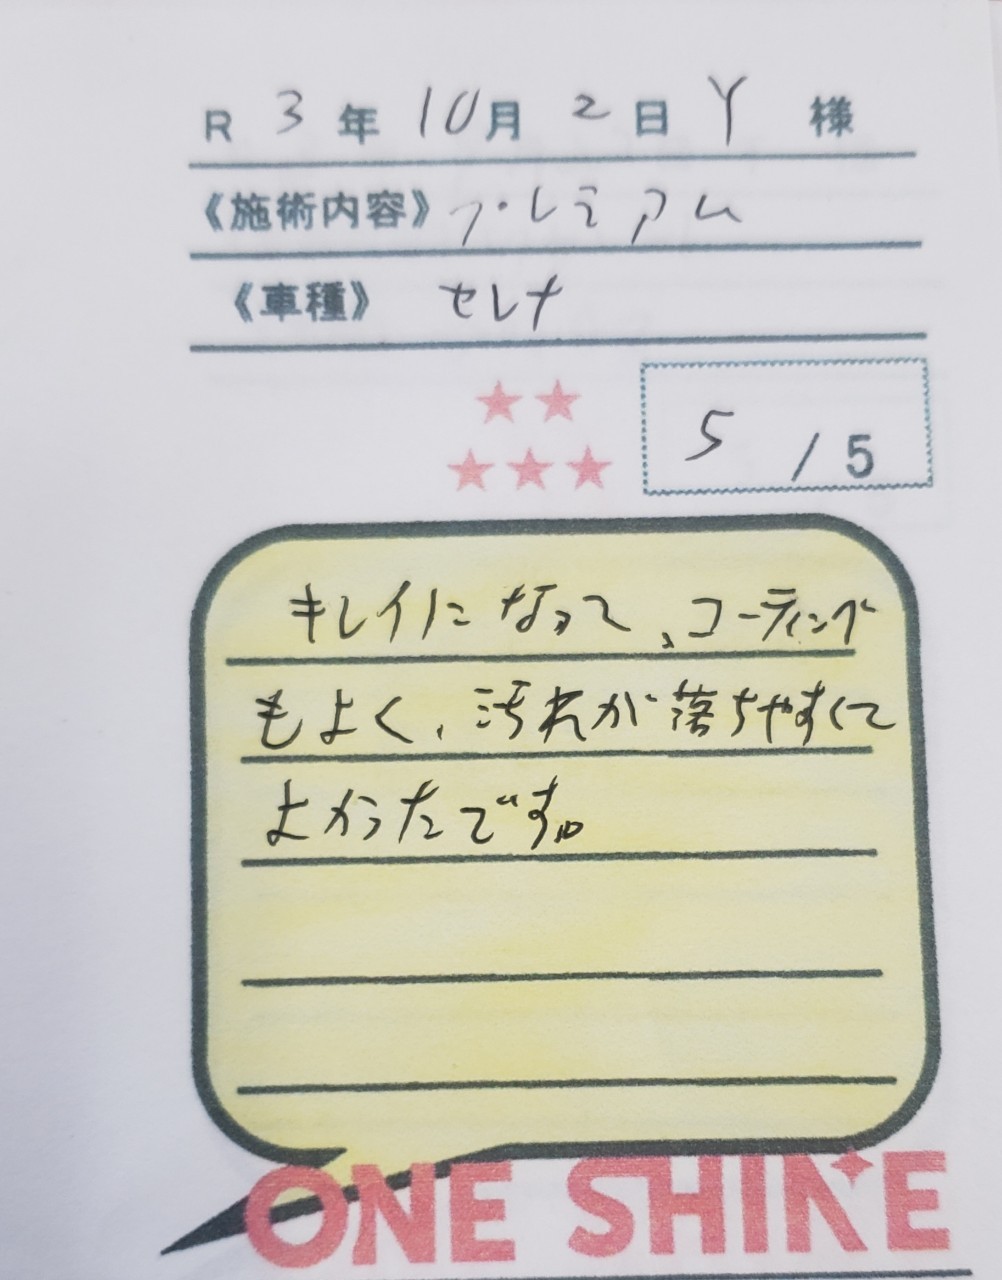 R 3 年 10 月 2 日 Y 様
《施術内容》 プレミアム
《車種》 セレナ
5 / 5
キレイになって、コーティング
もよく、汚れが落ちやすくて
よかったです。
ONE SHINE